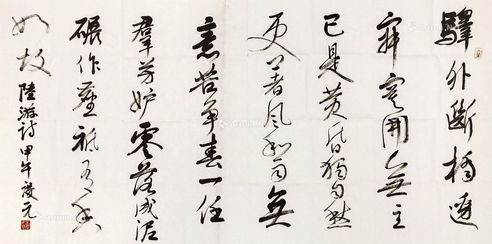 驛外斷橋邊
寂寞開無主
已是黃昏獨自愁
更著風和雨無
意苦爭春一任
羣芳妒零落成泥
碾作塵祇有香
如故
陸游詩甲午